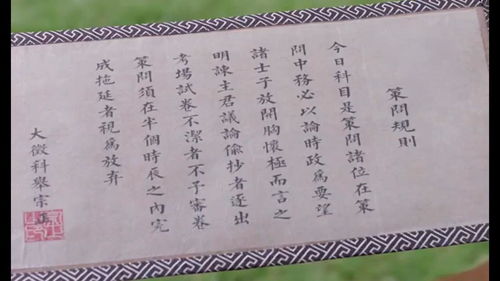 策問規則
今日科目是策問諸位在策
問中務必以論時政為要望
諸士子放開胸懷極而言之
明諫主君議論偷抄者逐出
考場試卷不潔者不予審卷
策問須在半個時辰之內完
成拖延者視為放弃
大徵科舉宗